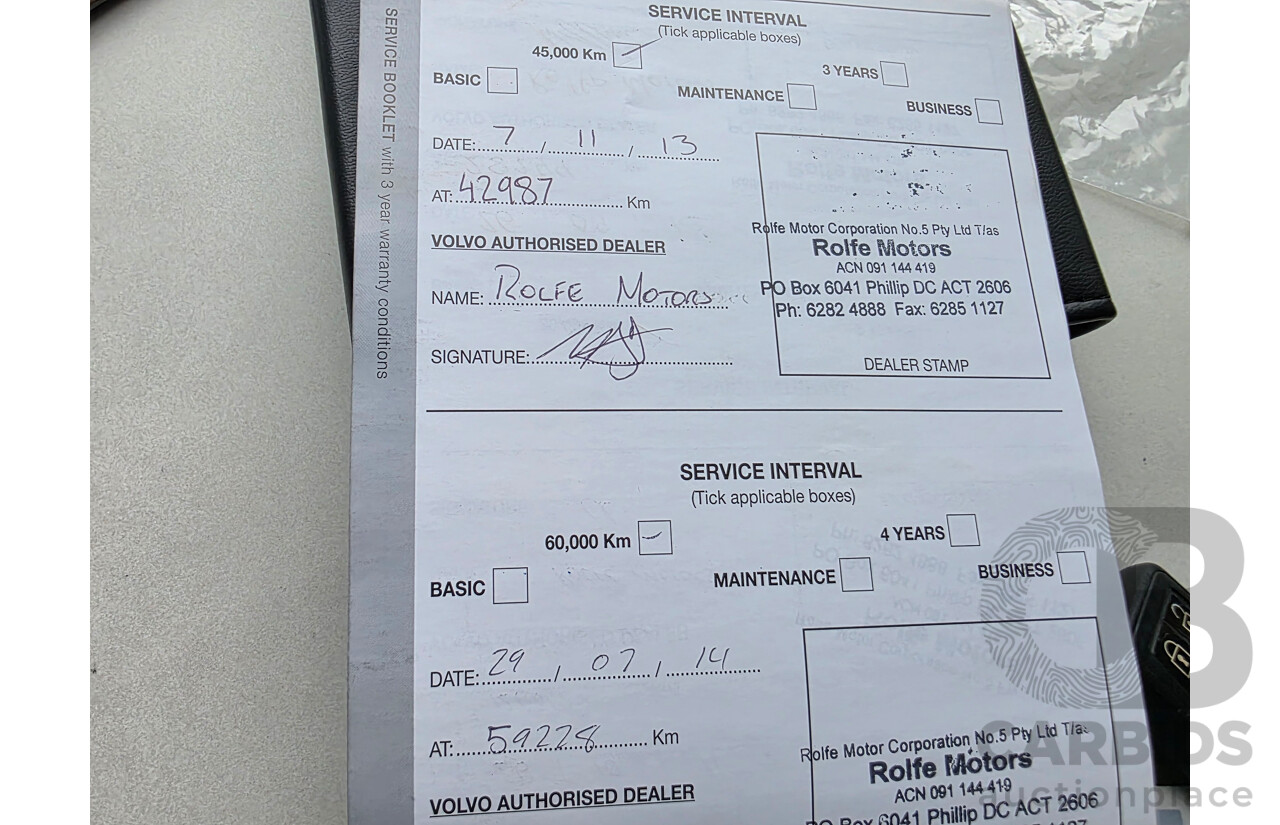 SERVICE BOOKLET with 3 year warranty conditions
SERVICE INTERVAL
(Tick applicable boxes)
45,000 Km
3 YEARS
BASIC
MAINTENANCE
BUSINESS
DATE: 7 / 11 / 13
AT: 42987 Km
VOLVO AUTHORISED DEALER
NAME: ROLFE MOTORS
SIGNATURE:
Rolfe Motor Corporation No.5 Pty Ltd T/as
Rolfe Motors
ACN 091 144 419
PO Box 6041 Phillip DC ACT 2606
Ph: 6282 4888 Fax: 6285 1127
DEALER STAMP
SERVICE INTERVAL
(Tick applicable boxes)
60,000 Km
4 YEARS
BASIC
MAINTENANCE
BUSINESS
DATE: 29 / 07 / 14
AT: 59228 Km
VOLVO AUTHORISED DEALER
Rolfe Motor Corporation No.5 Pty Ltd T/as
Rolfe Motors
ACN 091 144 419
PO Box 6041 Phillip DC ACT 2606
CARBIDS
auctionplace